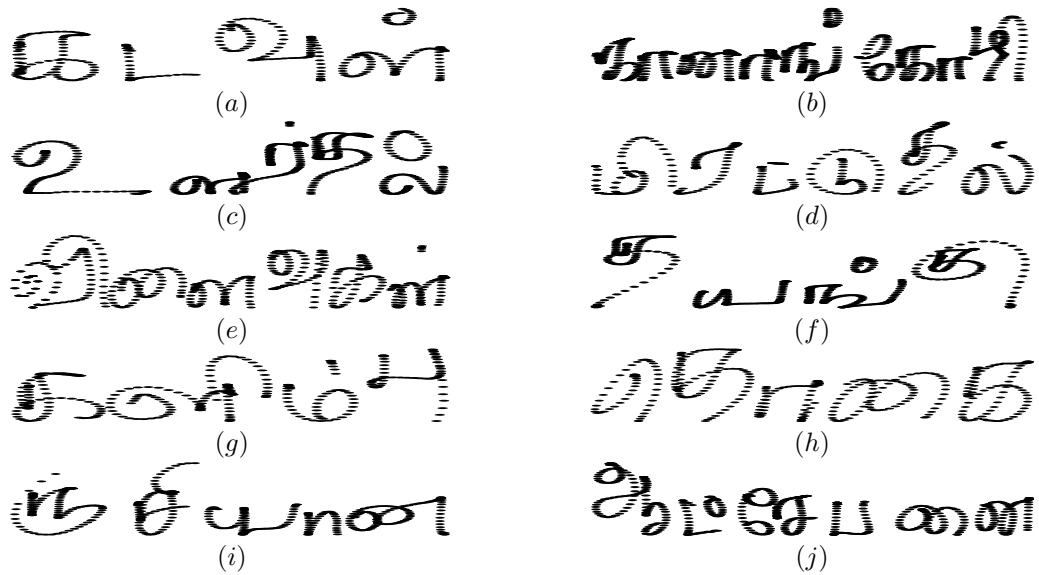 கடவுள்
(a)
கானாங்கோழி
(b)
(c)
மிரட்டுதல்
(d)
விளைவுகள்
(e)
தயங்கு
(f)
களிம்பு
(g)
தொகை
(h)
(i)
ஆட்சேபனை
(j)